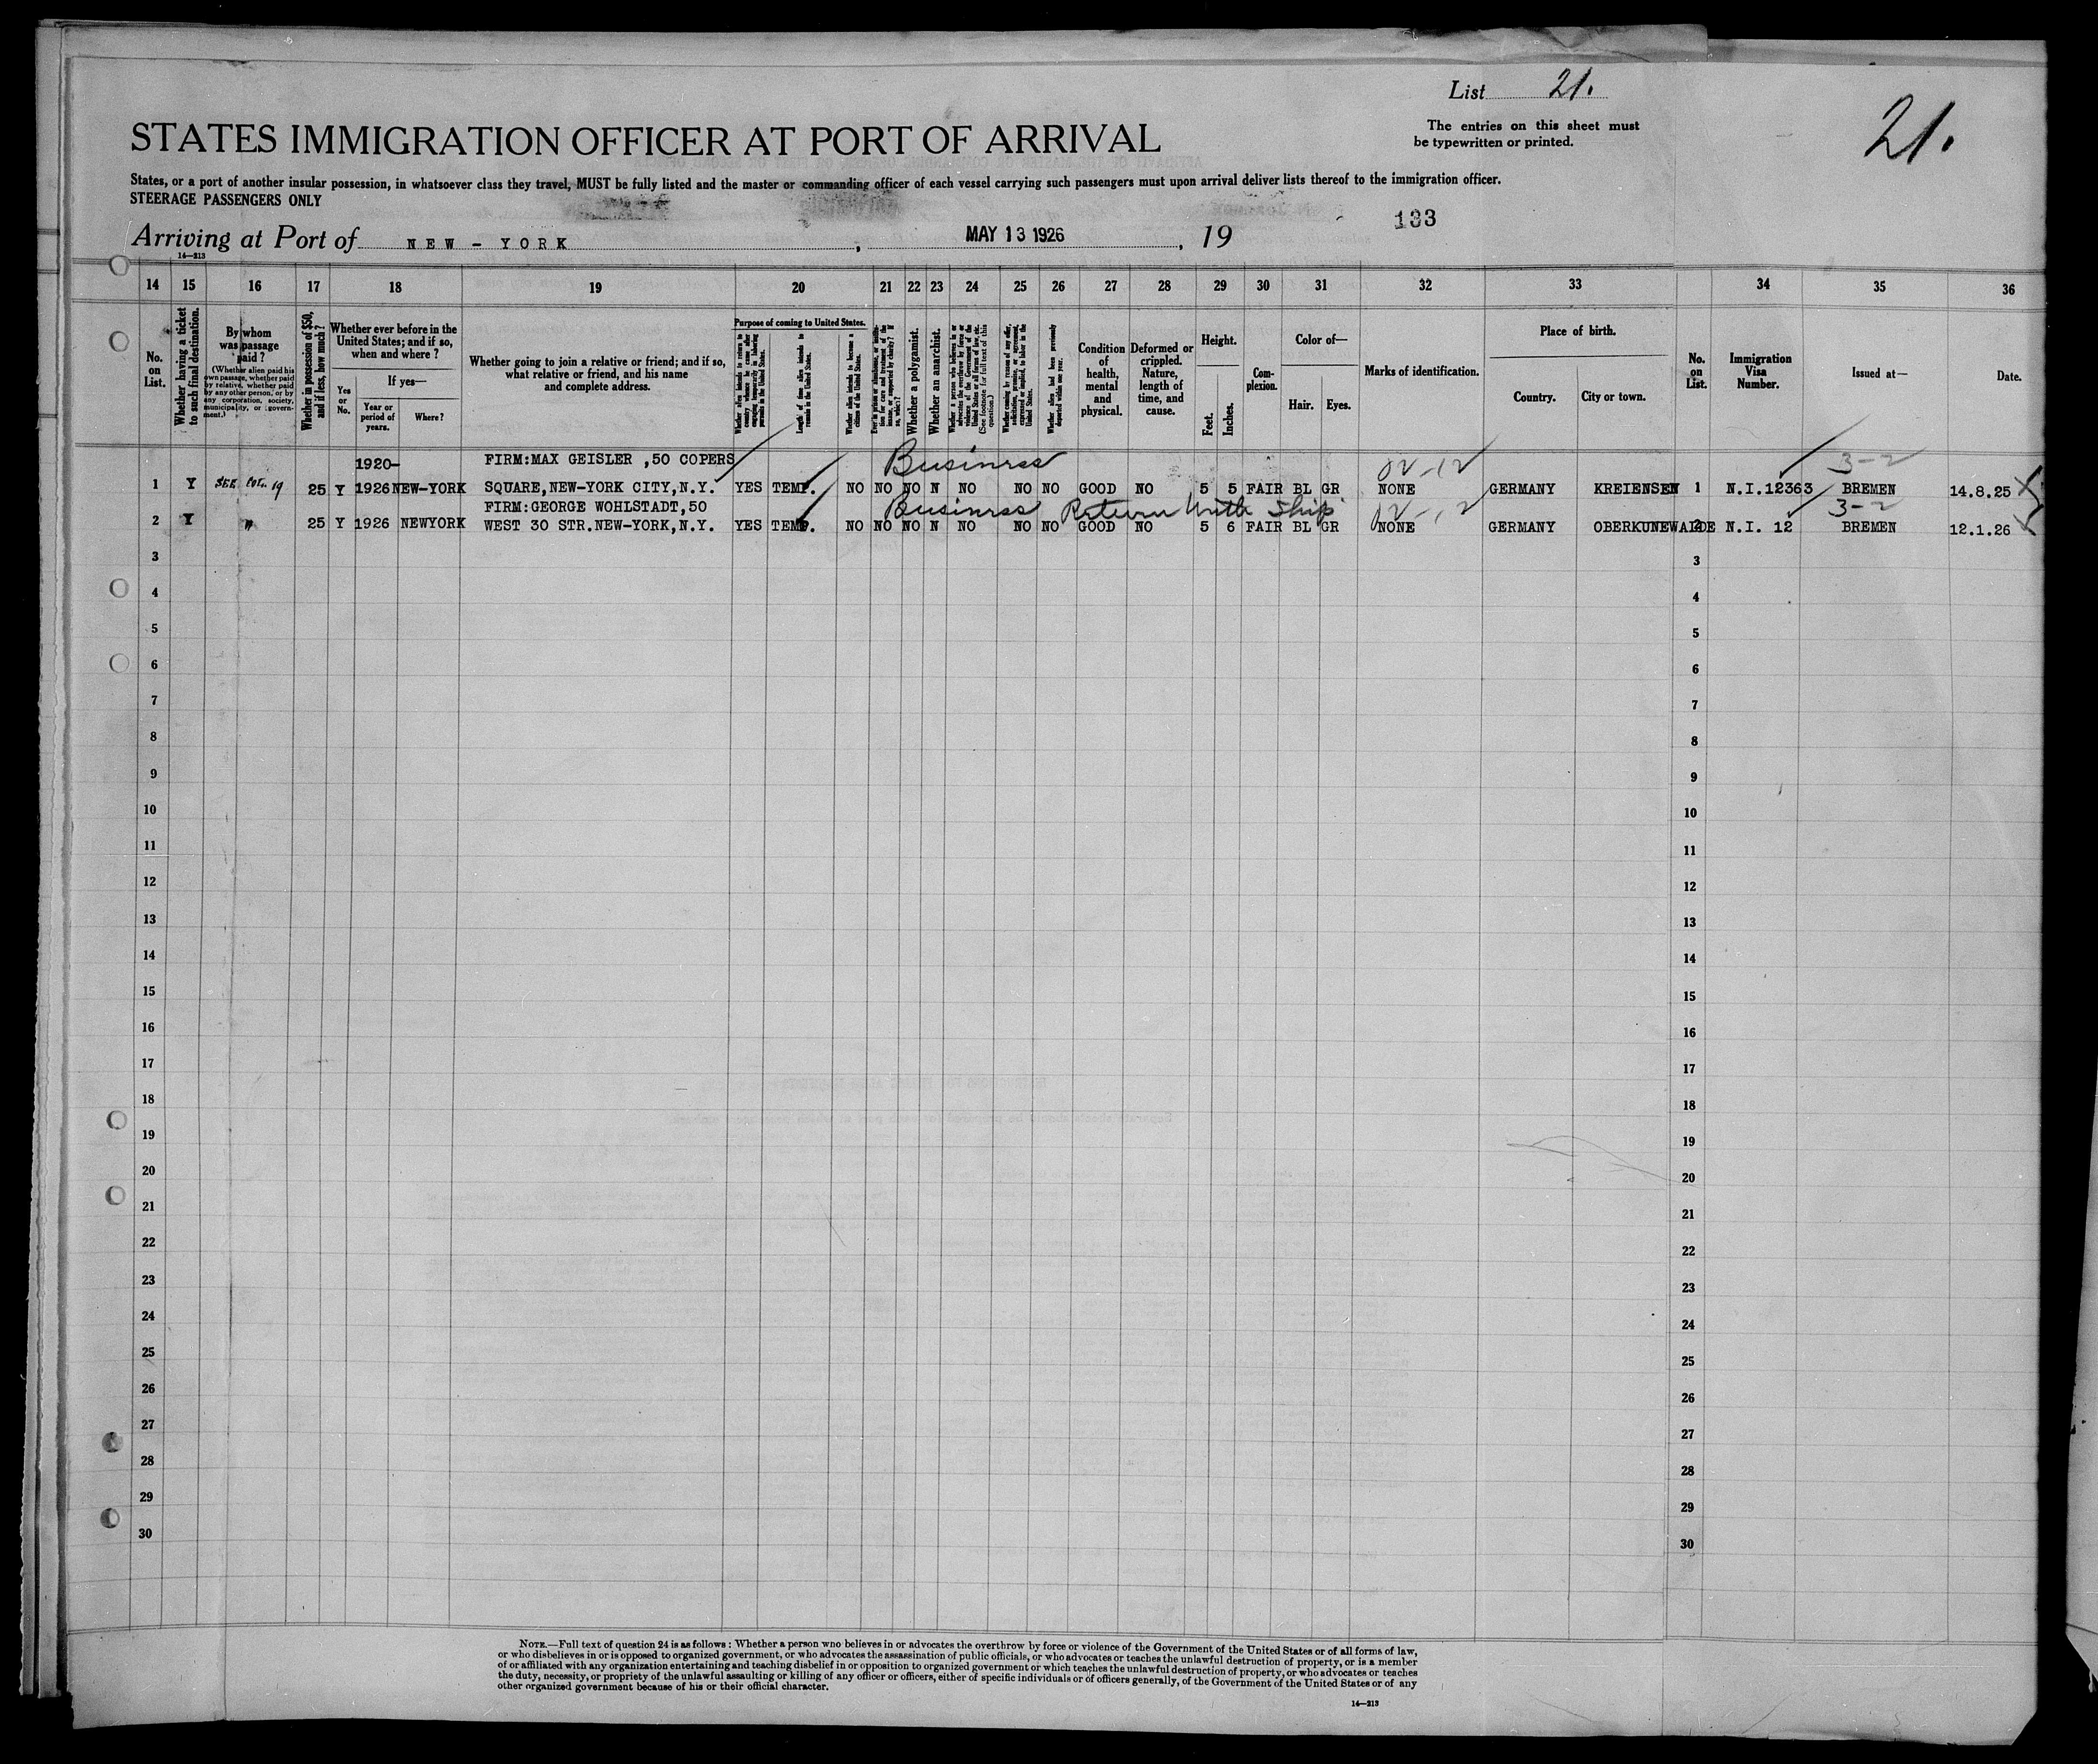 List 21.
21.
The entries on this sheet must
be typewritten or printed.
STATES IMMIGRATION OFFICER AT PORT OF ARRIVAL
States, or a port of another insular possession, in whatsoever class they travel, MUST be fully listed and the master or commanding officer of each vessel carrying such passengers must upon arrival deliver lists thereof to the immigration officer.
STEERAGE PASSENGERS ONLY
133
Arriving at Port of NEW-YORK, MAY 13 1926, 19
14—213
14 15 16 17 18 19 20 21 22 23 24 25 26 27 28 29 30 31 32 33 34 35 36
No. on List.
Whether having a ticket to such final destination.
By whom was passage paid?
(Whether alien paid his own passage, whether paid by relative, whether paid by any other person, or by any corporation, society, municipality, or government.)
Whether in possession of $50, and if less, how much?
Whether ever before in the United States; and if so, when and where?
Yes or No.
If yes—
Year or period of years.
Where?
Whether going to join a relative or friend; and if so, what relative or friend, and his name and complete address.
Purpose of coming to United States.
Whether alien intends to return to country whence he came after engaging temporarily in laboring pursuits in the United States.
Length of time alien intends to remain in the United States.
Whether alien intends to become a citizen of the United States.
Whether a polygamist.
Whether an anarchist.
Whether alien had been previously deported within one year.
Condition of health, mental and physical.
Deformed or crippled. Nature, length of time, and cause.
Height.
Feet.
Inches.
Complexion.
Color of—
Hair.
Eyes.
Marks of identification.
Place of birth.
Country.
City or town.
No. on List.
Immigration Visa Number.
Issued at—
Date.
1920- FIRM:MAX GEISLER ,50 COPERS Business 3-2
1 Y SEE COL. 19 25 Y 1926 NEW-YORK SQUARE,NEW-YORK CITY,N.Y. YES TEMP. NO NO NO N NO NO NO GOOD NO 5 5 FAIR BL GR NONE GERMANY KREIENSEN 1 N.I.12363 BREMEN 14.8.25
FIRM:GEORGE WOHLSTADT,50 Business Return With Ship 3-2
2 Y " 25 Y 1926 NEWYORK WEST 30 STR.NEW-YORK,N.Y. YES TEMP. NO NO NO N NO NO NO GOOD NO 5 6 FAIR BL GR NONE GERMANY OBERKUNEWALDE 2 N.I. 12 BREMEN 12.1.26
3 3
4 4
5 5
6 6
7 7
8 8
9 9
10 10
11 11
12 12
13 13
14 14
15 15
16 16
17 17
18 18
19 19
20 20
21 21
22 22
23 23
24 24
25 25
26 26
27 27
28 28
29 29
30 30
NOTE.—Full text of question 24 is as follows: Whether a person who believes in or advocates the overthrow by force or violence of the Government of the United States or of all forms of law,
or who disbelieves in or is opposed to organized government, or who advocates the assassination of public officials, or who advocates or teaches the unlawful destruction of property, or is a member
of or affiliated with any organization entertaining and teaching disbelief in or opposition to organized government or which teaches the unlawful destruction of property, or who advocates or teaches
the duty, necessity, or propriety of the unlawful assaulting or killing of any officer or officers, either of specific individuals or of officers generally, of the Government of the United States or of any
other organized government because of his or their official character.
14—213